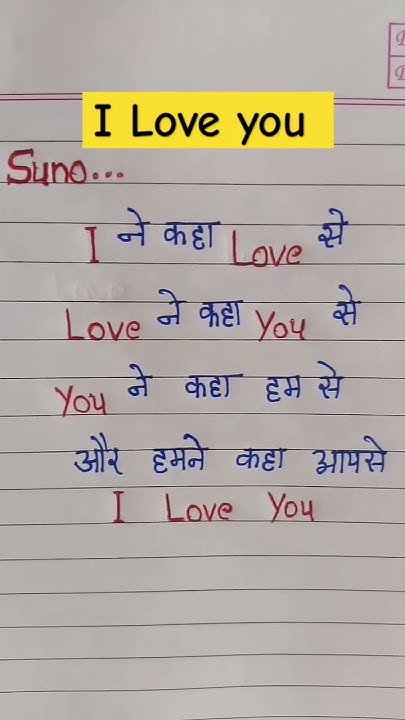 I Love you
Suno...
I ने कहा Love से
Love ने कहा You से
You ने कहा हम से
और हमने कहा आपसे
I Love You